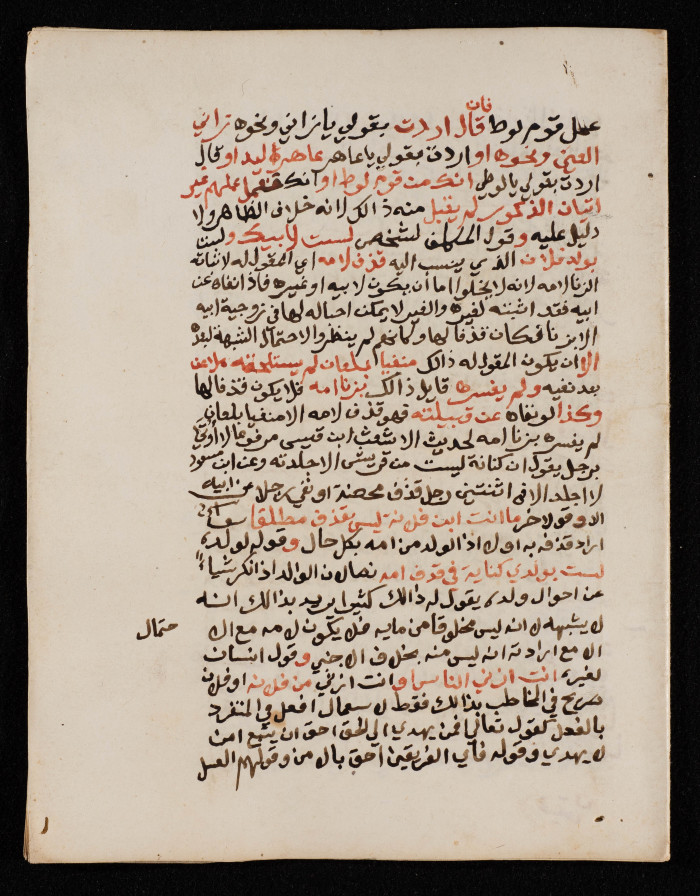 فان
عمل قوم لوط قال اردت بقولي يا زاني ونحوه زاني
العين ونحوه او اردت بقولي يا عاهر عاهر اليد او قال
اردت بقولي يا لوطي انك من قوم لوط او انك تعمل عملهم غير
اتيان الذكور لم يقبل منه ذالك لانه خلاف الظاهر ولا
دليل عليه وقول المكلف لشخص لست لابيك ولست
بولد فلان الذي ينسب اليه قذف لامه اي المقول له لاثباته
الزنا لامه لانه لا يخلوا اما ان يكون لابيه او غيره فاذا نفاه عن
ابيه فقد اثبته لغيره والغير لا يمكن احباله لها في زوجية ابيه
الا بزنا فكان قذفا لها وكانهم لم ينظروا لاحتمال الشبهة لبعده
الا ان يكون المقول له ذالك منفيا بلعان لم يستلحقه ملاعن
بعد نفيه ولم يفسره قايل ذالك بزنا امه فلا يكون قذفا لها
وكذا لو نفاه عن قبيلته فهو قذف لامه الا منفيا بلعان
لم يفسره بزنا امه لحديث الاشعث ابن قيس مرفوعا لا اوتى
برجل يقول ان كنانة ليست من قريش الا جلدته وعن ابن مسعود
لا اجلد الا في اثنتين رجل قذف محصنة او نفي رجلا عن ابيه
الا وقول لاخر ما انت ابن فلانة ليس بقذف مطلقا سواء
اراد قذفه به او لا اذ الولد من امه بكل حال وقوله لولده
لست بولدي كناية في قذف امه نصا لان الوالد اذا انكر شيا
عن احوال ولده يقول له ذالك كثيرا يريد بذالك انه
لا يشبهه لا انه ليس مخلوقا من مايه فلا يكون لامه مع الا
حتمال
الا مع ارادته انه ليس منه بخلاف الاجنبي وقول انسان
لغيره انت ازنى الناس او انت ازنى من فلانة او فلان
صريح في المخاطب بذالك فقط لاستعمال افعل في المنفرد
بالفعل كقوله تعالى فمن يهدي الى الحق احق ان يتبع امن
لا يهدي وقوله فاي الفريقين احق بالامن وقولهم العسل